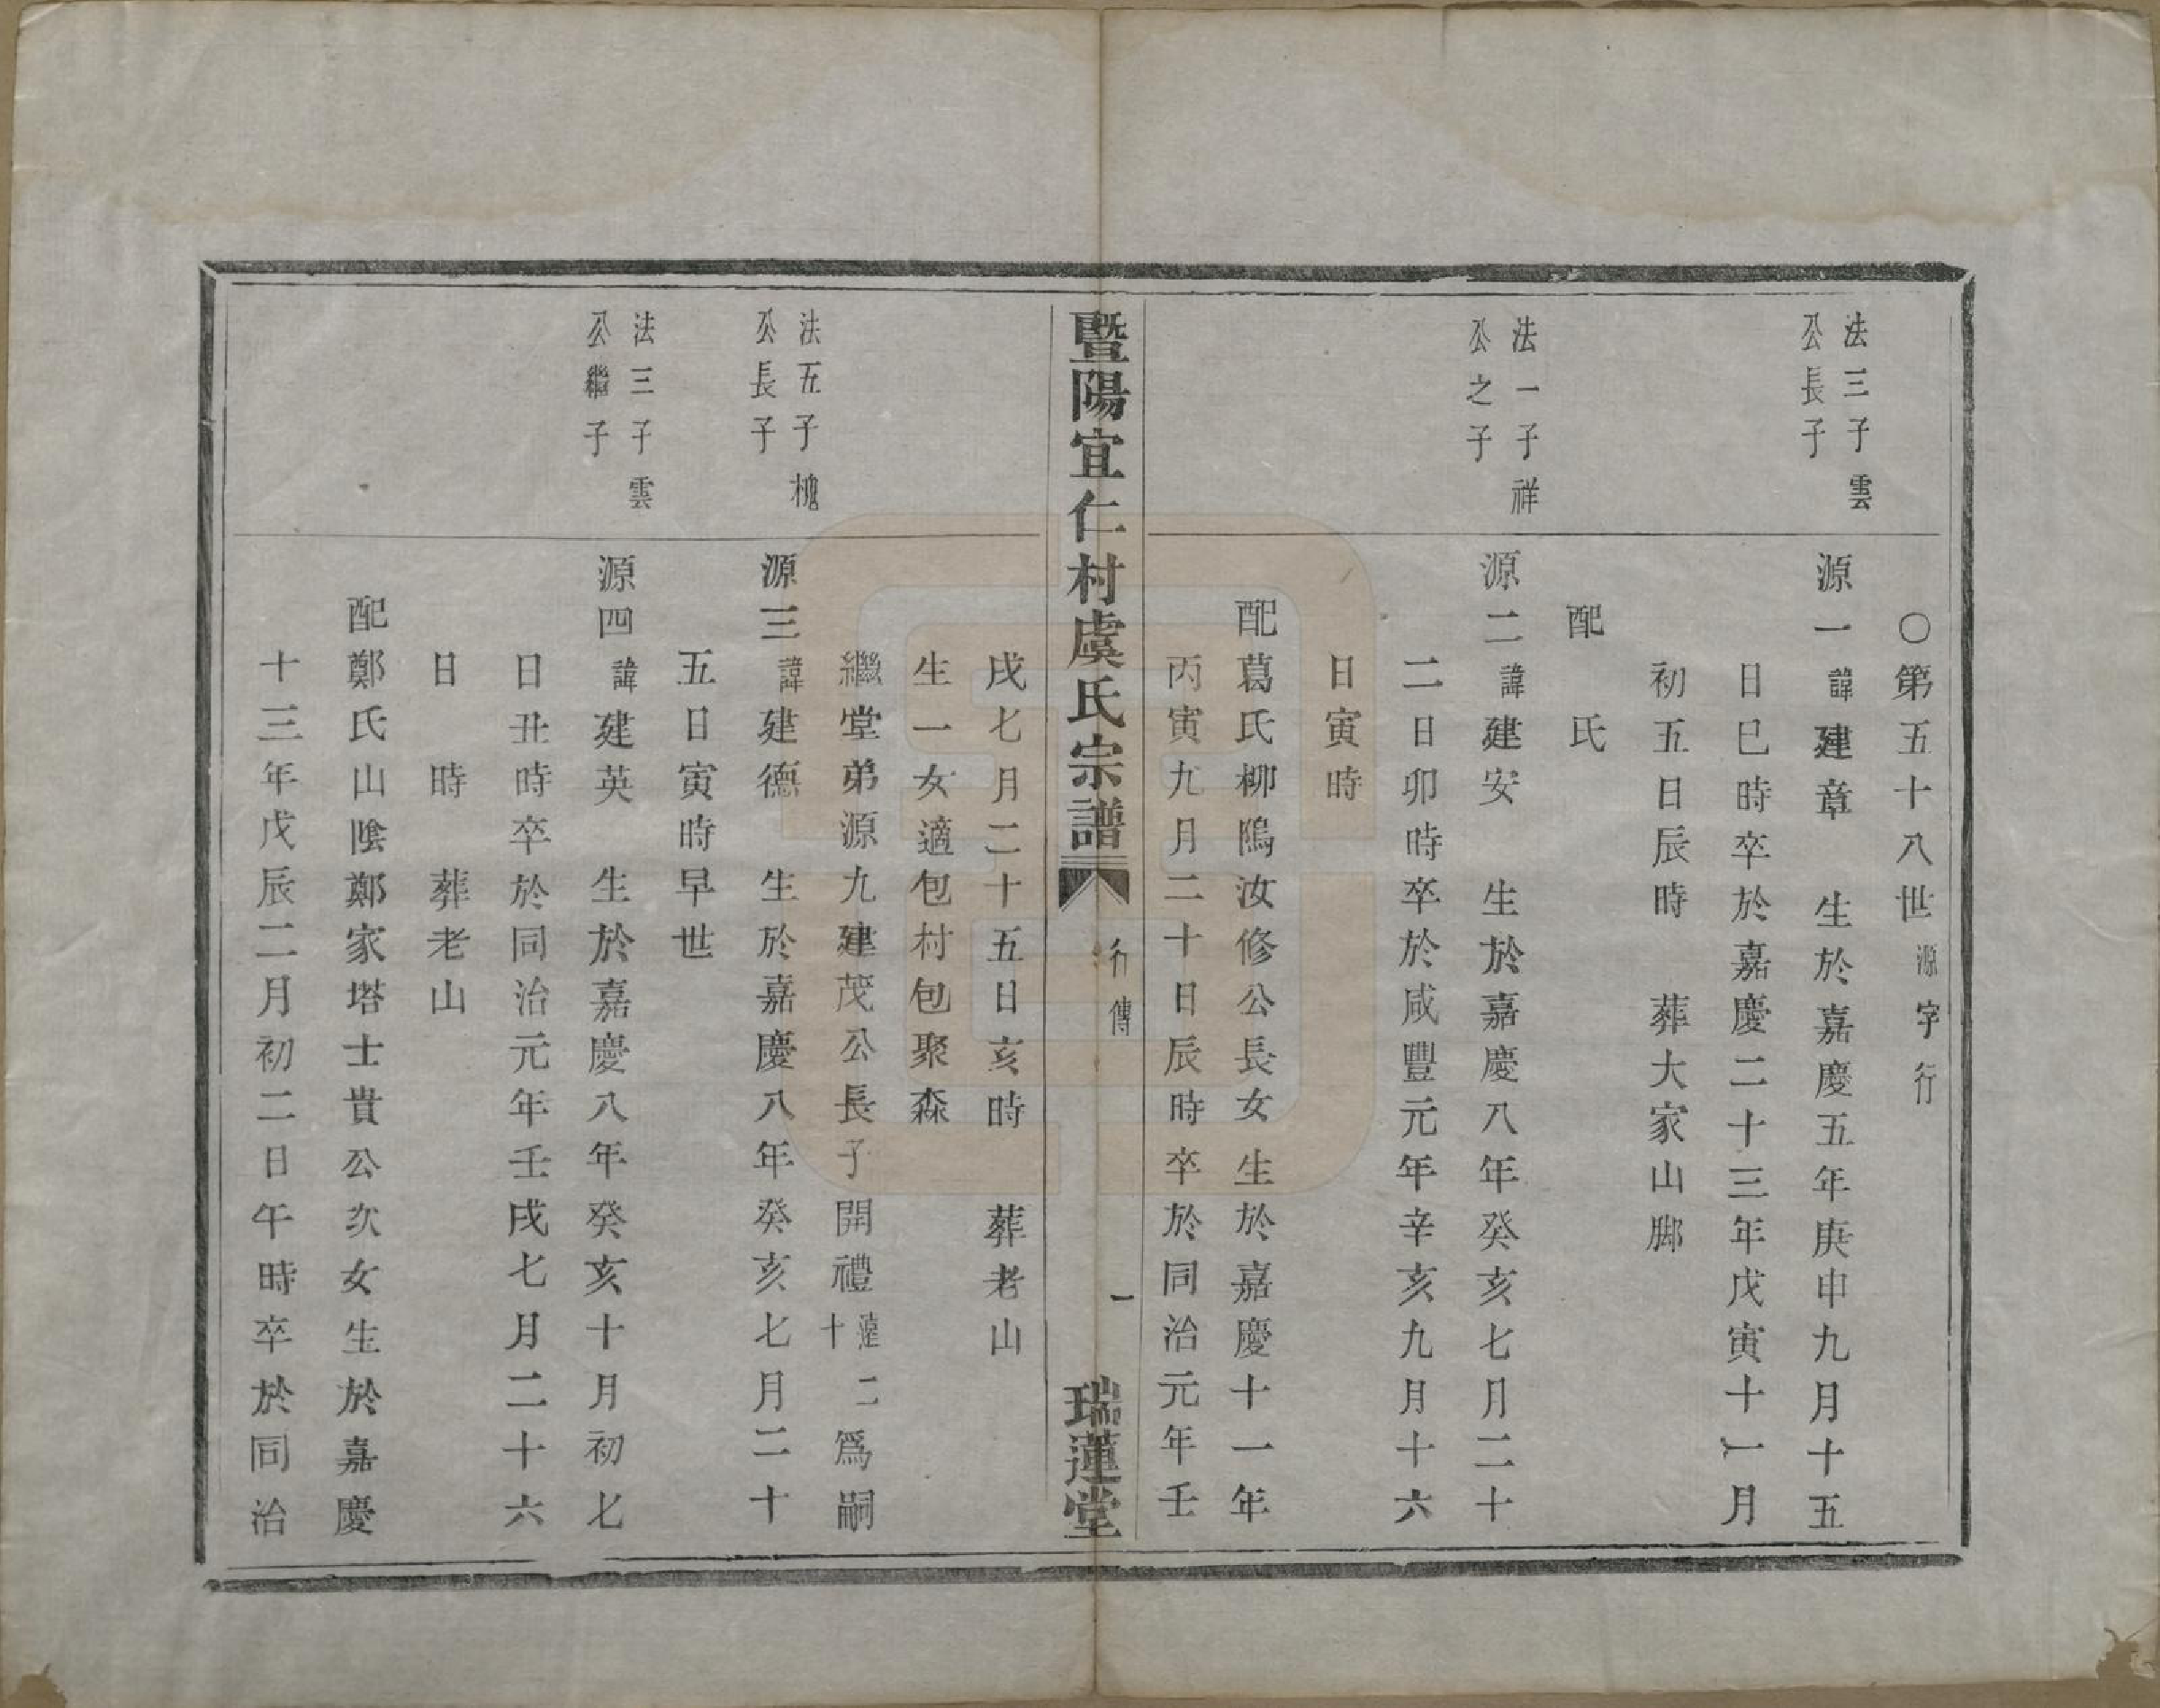 〇第五十八世源字行
法三子雲
公長子
源一諱建章　生於嘉慶五年庚申九月十五
日巳時卒於嘉慶二十三年戊寅十一月
初五日辰時　葬大家山脚
配　氏
法一子祥
公之子
源二諱建安　生於嘉慶八年癸亥七月二十
二日卯時卒於咸豐元年辛亥九月十六
日寅時
配葛氏柳隖汝修公長女生於嘉慶十一年
丙寅九月二十日辰時卒於同治元年壬
暨陽宜仁村虞氏宗譜
行傳
一
瑞蓮堂
戌七月二十五日亥時　葬老山
生一女適包村包聚森
繼堂弟源九建茂公長子開禮達二十爲嗣
法五子槐
公長子
源三諱建德　生於嘉慶八年癸亥七月二十
五日寅時早世
法三子雲
公繼子
源四諱建英　生於嘉慶八年癸亥十月初七
日丑時卒於同治元年壬戌七月二十六
日　時　葬老山
配鄭氏山陰鄭家塔士貴公次女生於嘉慶
十三年戊辰二月初二日午時卒於同治